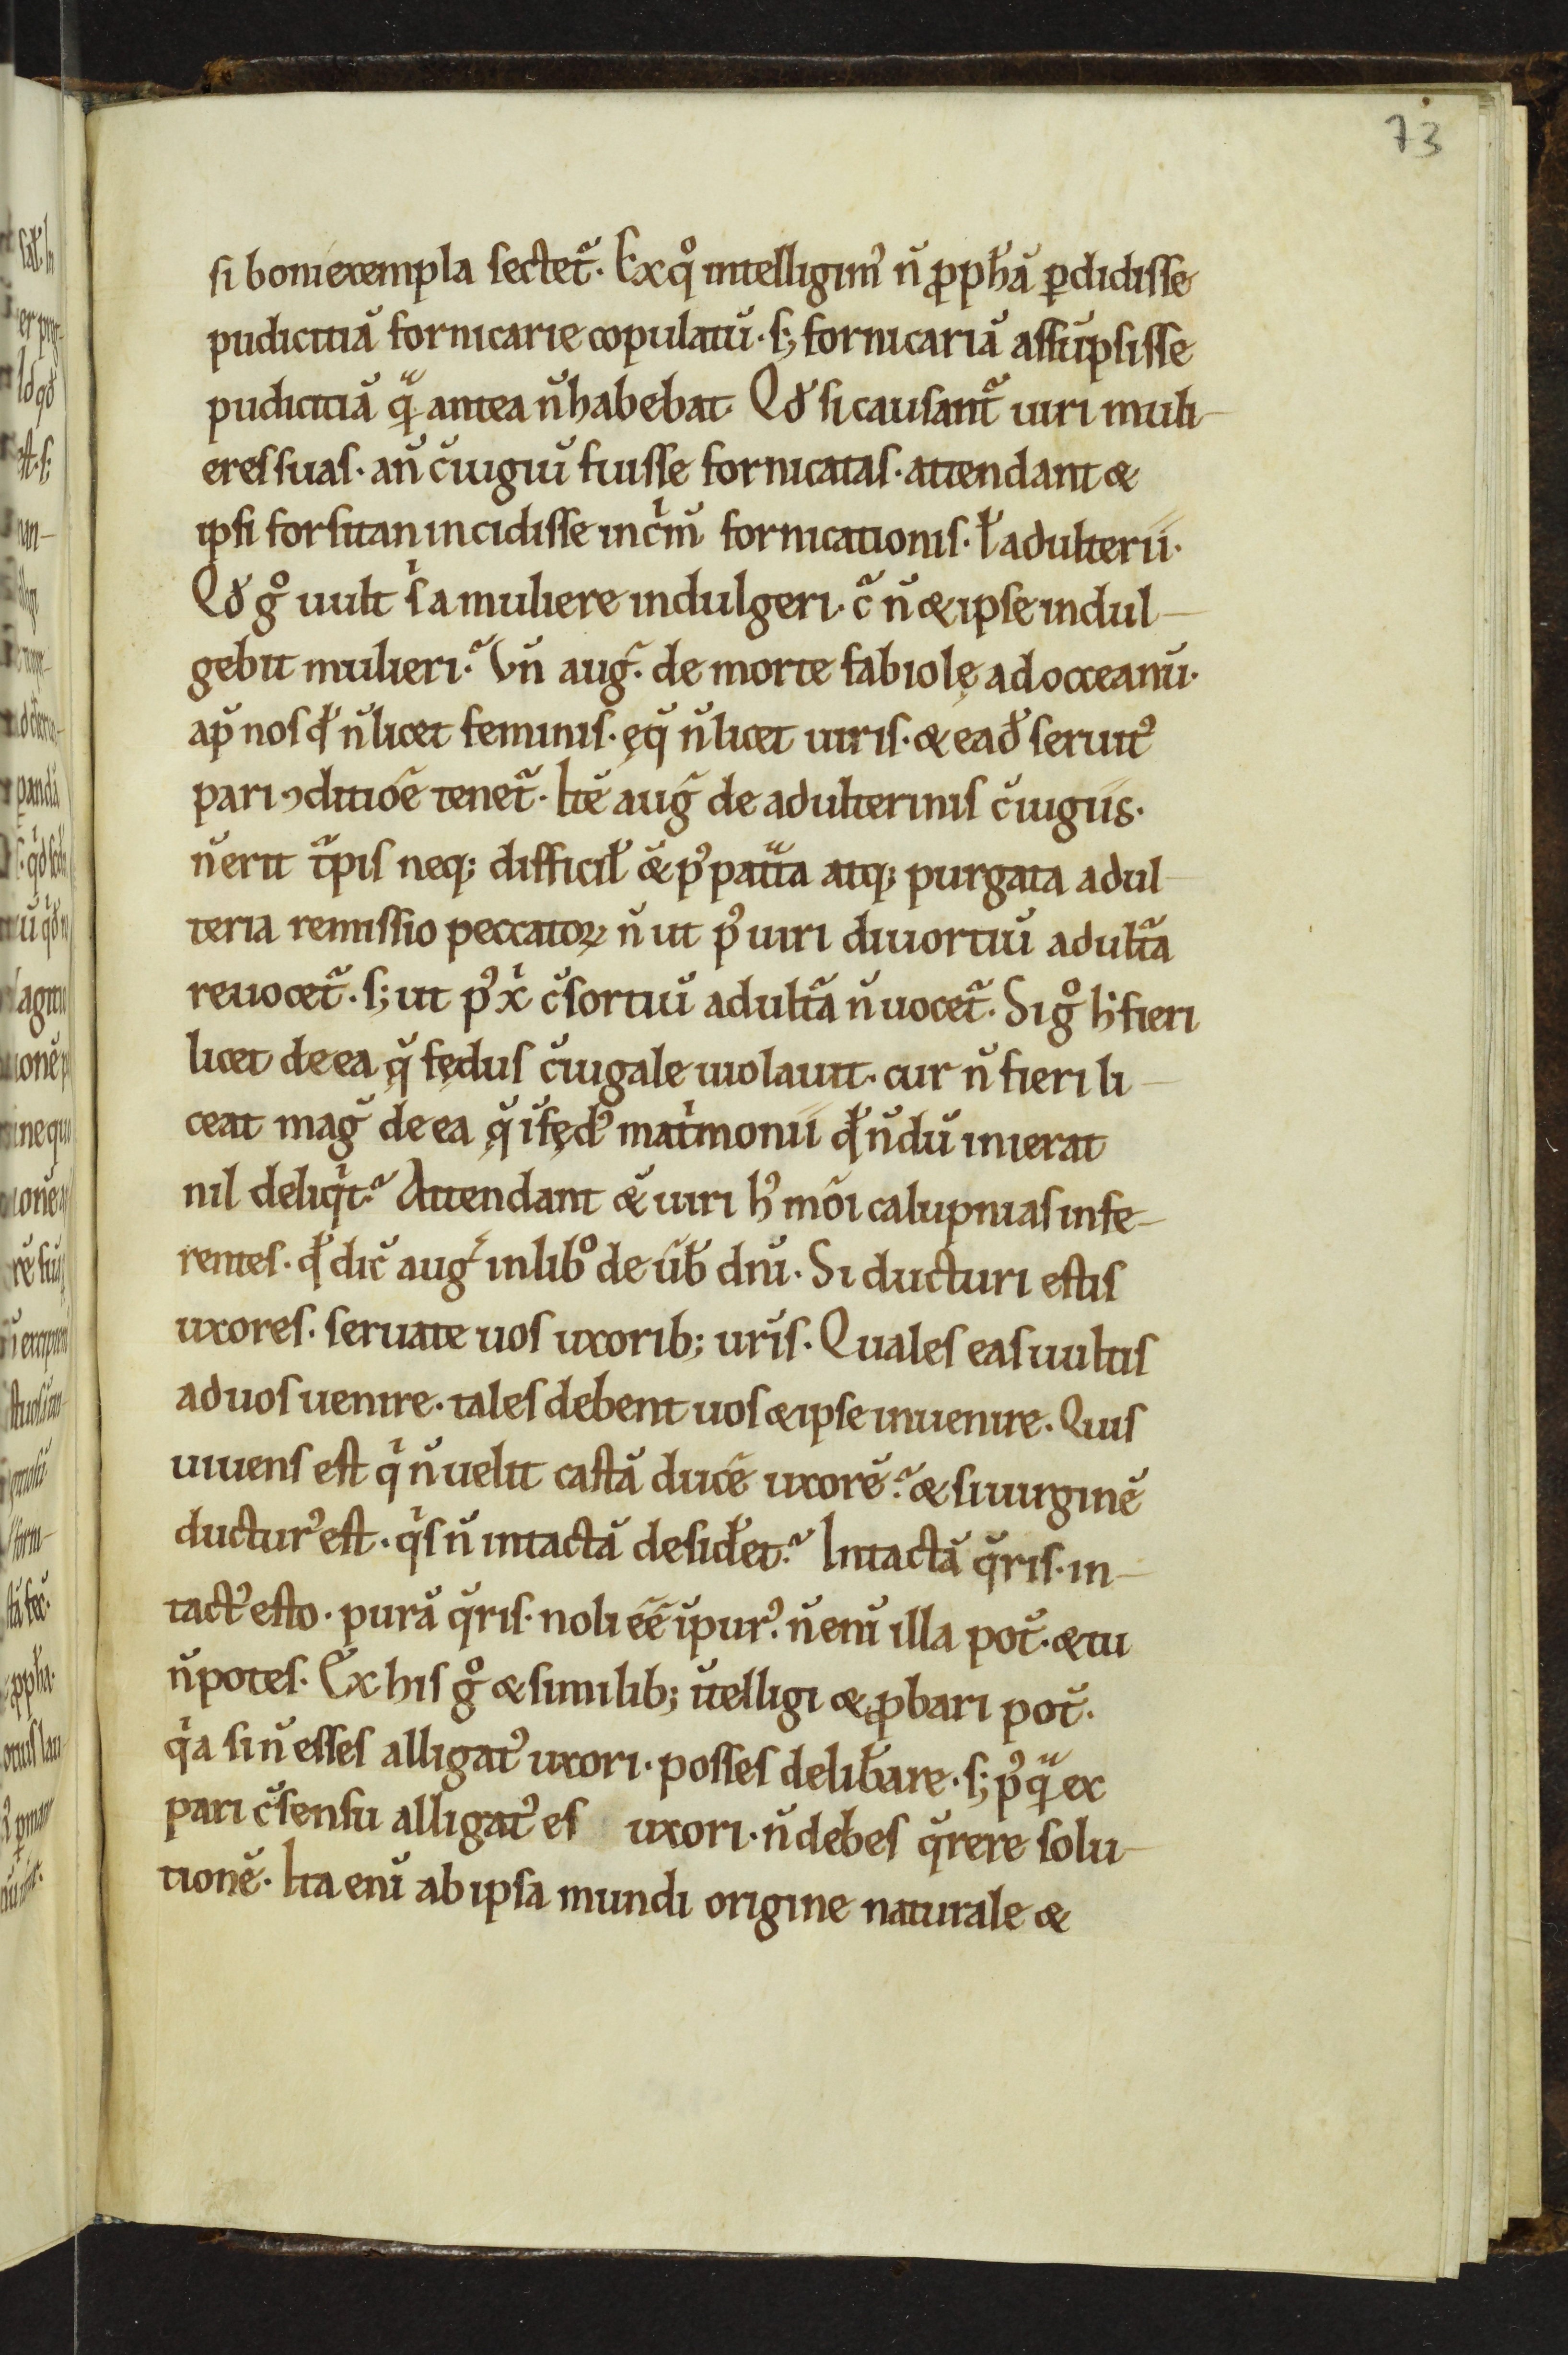 73
si boni exempla sectet᷑. Ex qͦ intelligim᷒ n̄ ꝓpħā ꝑdidisse
pudicitiā fornicarie copulatū. s; fornicariā assūpsisse
pudicitiā qᷓ antea n̄ habebat. Qđ si causant᷑ uiri muli-
eres suas. an̄ c̄iugiū fuisse fornicatas. attendant &
ipsi forsitan incidisse in cͥm̄ fornicationis. ł adulterii.
Qđ gͦ uult sͥ a muliere indulgeri. c᷑ n̄ & ipse indul-
gebit mulieri? Vn̄ aug᷑. de morte fabiolę ad occeanū.
ap̄ nos qđ n̄ licet feminis. ęq̄ n̄ licet uiris. & eađ seruit᷒
pari ꝯditiōe tenet᷑. Itē aug᷑ de adulterinis c̄iugiis.
n̄ erit t᷑pis neq; difficił & p᷒ patᷓta atq; purgata adul
teria remissio peccatoꝝ n̄ ut p᷒ uiri diuortiū adult᷑a
reuocet᷑. s; ut p᷒ xͥ c̄sortiū adult᷑a n̄ uocet᷑. Si gͦ h̄ fieri
licet de ea q̄ fędus c̄iugale uiolauit. cur n̄ fieri li-
ceat maḡ de ea q̄ īfęd᷒ matͥmonii qđ n̄dū inierat
nil deliqͥt? Attendant & uiri h᷒ mōi calupnias infe-
rentes. qđ dic̄ aug᷑ in libͦ de ūƀ dn̄i. Si ducturi estis
uxores. seruate uos uxorib; uris̄. Quales eas uultis
ad uos uenire. tales debent uos & ipse inuenire. Quis
uiuens est qͥ n̄ uelit castā ducē uxorē? & si uirginē
ductur᷒ est. qͥs n̄ intactā desiđet? Intactā q̄ris. in-
tact᷒ esto. purā q̄ris. noli eē īpur᷒. n̄ enī illa pot̄. & tu
n̄ potes. Ex his gͦ & similib; ītelligi & ꝓbari pot̄.
qͥa si n̄ esses alligat᷒ uxori. posses deliƀare. s; p᷒qᷓ ex
pari c̄sensu alligat᷒ es uxori. n̄ debes q̄rere solu-
tionē. Ita enī ab ipsa mundi origine naturale &